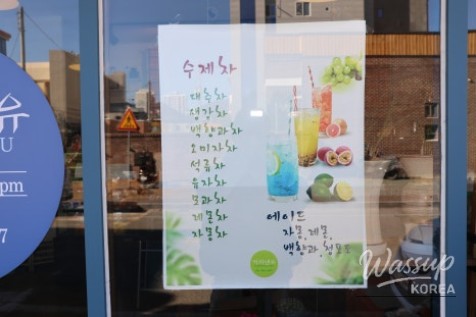 유
U
pm
7
수제차
대추차
생강차
백향과차
오미자차
석류차
유자차
모과차
레몬차
자몽차
에이드
자몽, 레몬,
백향과, 청포도
Wassup
KOREA